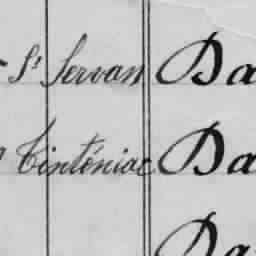 St Servan Da
Tinténiac Da
Da